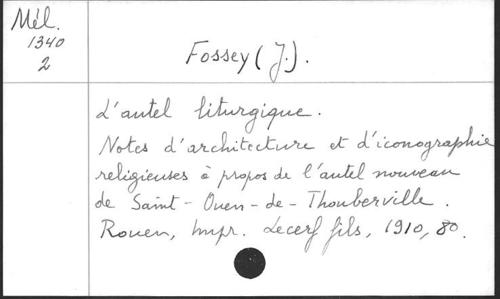 Mél.
1340
2
Fossey (J.).
L'autel liturgique.
Notes d'architecture et d'iconographie
religieuses à propos de l'autel nouveau
de Saint-Ouen-de-Thouberville.
Rouen, Impr. Lecerf fils, 1910, 80.